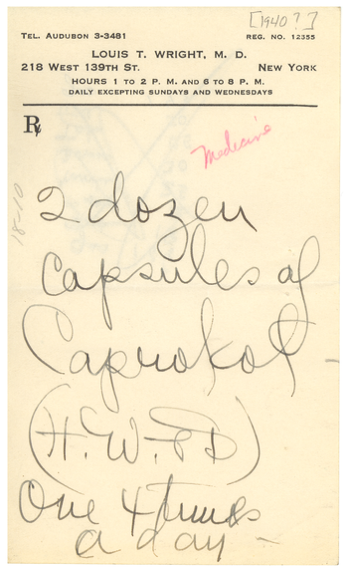 [1940?]
TEL. AUDUBON 3-3481 REG. NO. 12355
LOUIS T. WRIGHT, M. D.
218 WEST 139TH ST. NEW YORK
HOURS 1 TO 2 P. M. AND 6 TO 8 P. M.
DAILY EXCEPTING SUNDAYS AND WEDNESDAYS
℞
Medicine
18-10
2 dozen
Capsules of
Caprokol -
(H. W. & D)
One 4 times
a day -